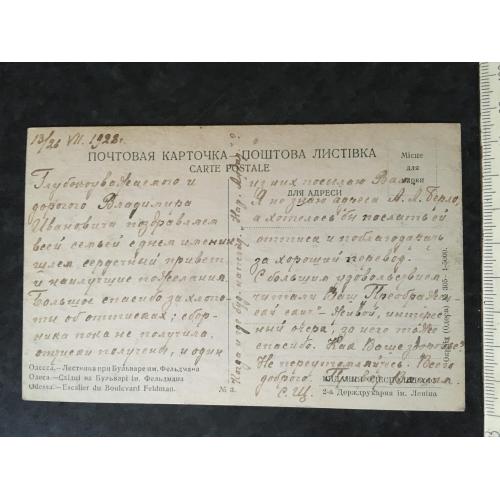 13/26 VII. 1928 г.
ПОЧТОВАЯ КАРТОЧКА - ПОШТОВА ЛИСТІВКА
CARTE POSTALE
Місце
для
марки
ДЛЯ АДРЕСИ
Глубокоуважаемого и
дорогого Владимира
Ивановича поздравляем
всей семьей с днем именин,
шлем сердечный привет
и наилучшие пожелания.
Большое спасибо за хлопо-
ты об оттисках; сбор-
ника пока не получила,
оттиски получены, и один
из них посылаю Вам.
Я не знаю адреса А. Л.
а хотелось бы послать ей
оттиск и поблагодарить
за хороший перевод.
С большим удовольствием
читали Ваш
живой, интерес-
ный очерк, за него тоже
спасибо. Как Ваше здоровье?
Не переутомляйтесь. Всего
доброго. Привет Вашим.
С. Щ.
Когда и где буд.
Одесса.—Лестница при Бульваре им. Фельдмана
Одеса.—Східці на Бульварі ім. Фельдмана
Odessa.—Escalier du Boulevard Feldman.
№ 3.
2-а Держдрукарня ім. Леніна